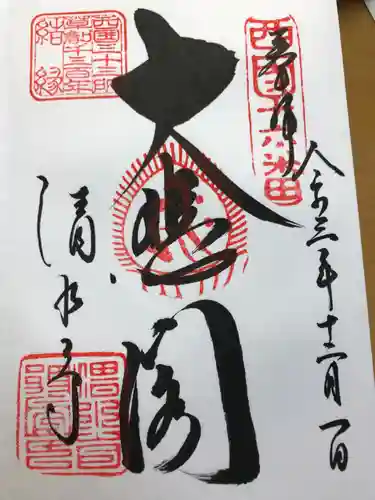 西国十六番
奉拝
令和三年十二月一日
大悲閣
西国三十三所
草創千三百年
結縁
清水寺